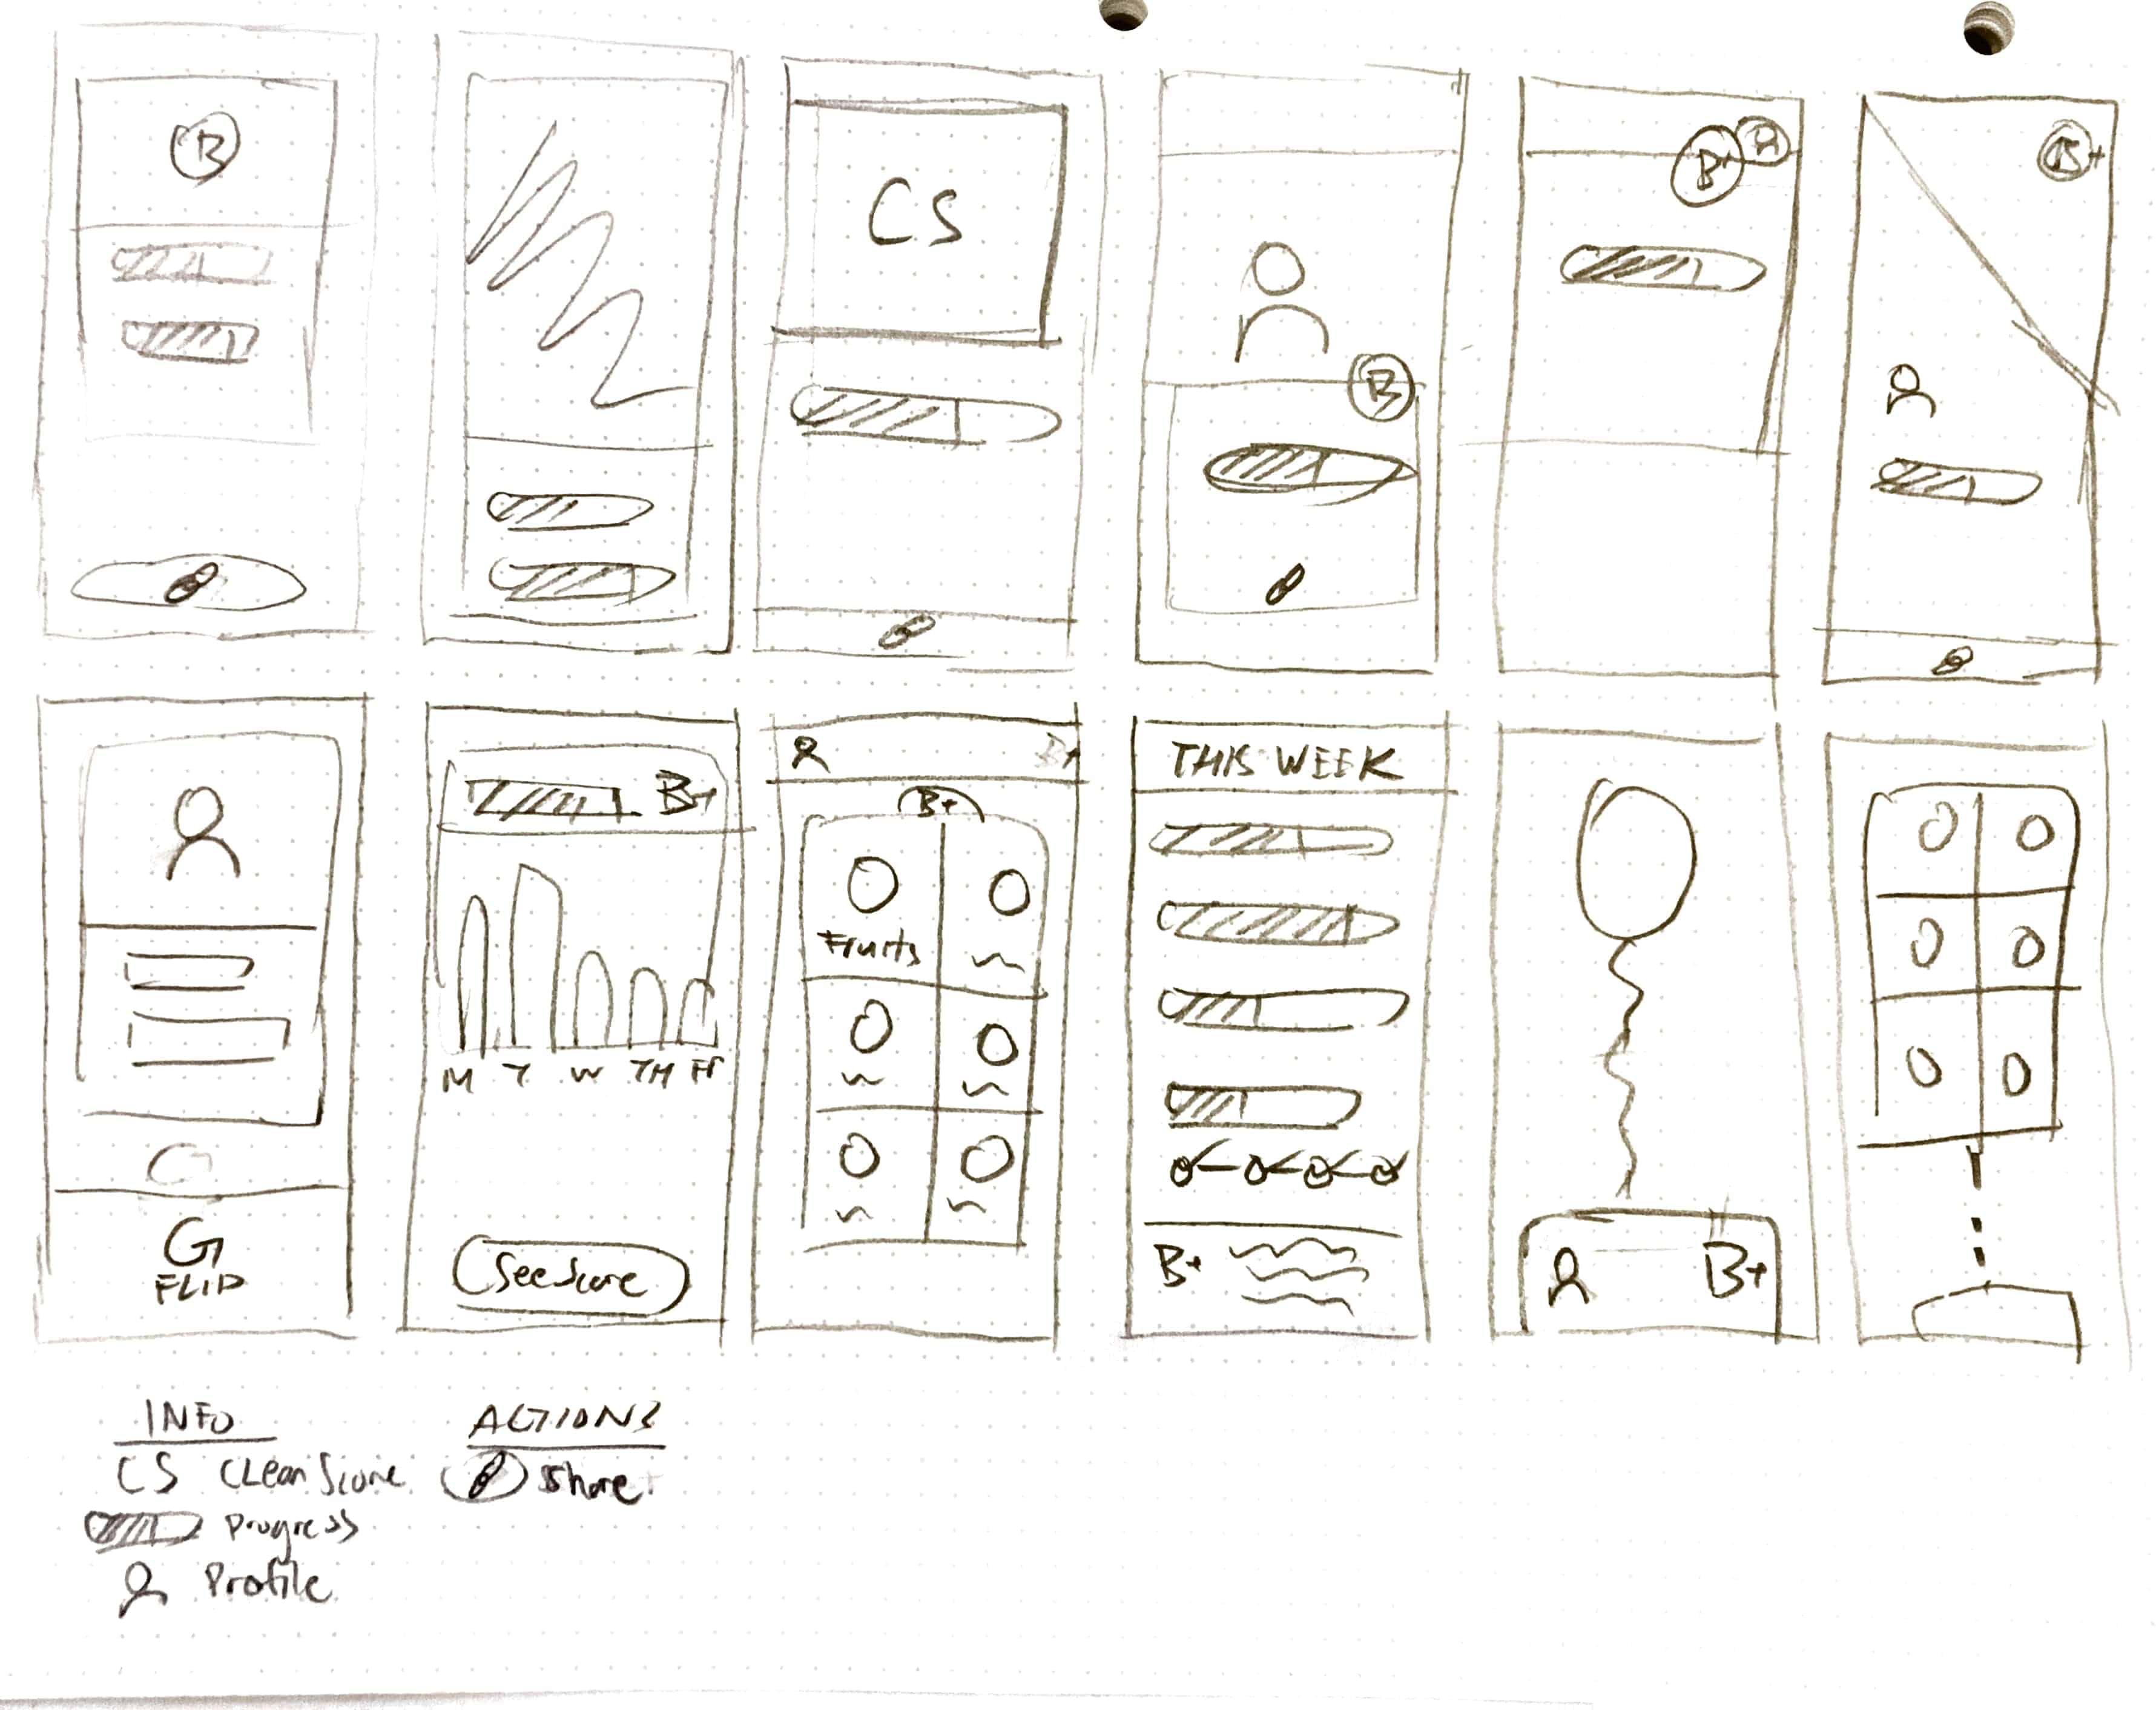 B
CS
B
B
B+
B+
B+
B+
Fruits
M T W TH Fr
See Score
G
FLIP
THIS WEEK
B+
B+
INFO
CS Clean Score
Progress
Profile
ACTIONS
Share